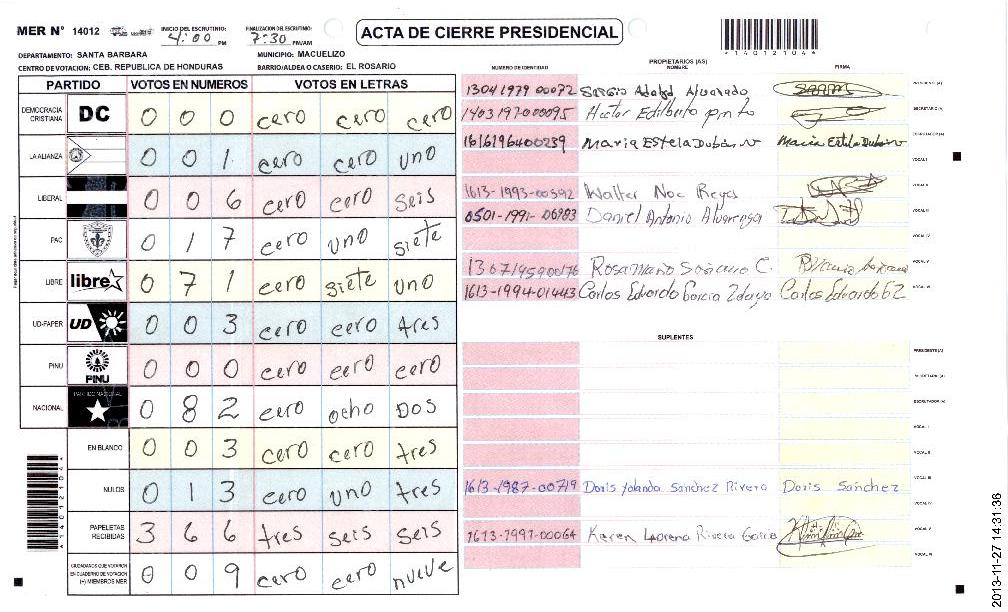 MER N° 14012
INICIO DEL ESCRUTINIO: 4:00 PM
FINALIZACION DEL ESCRUTINIO: 7:30 PM/AM
ACTA DE CIERRE PRESIDENCIAL
*14012104*
DEPARTAMENTO: SANTA BARBARA
MUNICIPIO: MACUELIZO
CENTRO DE VOTACION: CEB. REPUBLICA DE HONDURAS
BARRIO/ALDEA O CASERIO: EL ROSARIO
PARTIDO VOTOS EN NUMEROS VOTOS EN LETRAS
DEMOCRACIA CRISTIANA DC 0 0 0 cero cero cero
LA ALIANZA 0 0 1 cero cero uno
LIBERAL 0 0 6 cero cero seis
PAC 0 1 7 cero uno siete
LIBRE libre 0 7 1 cero siete uno
UD-FAPER UD 0 0 3 cero cero tres
PINU PINU 0 0 0 cero cero cero
NACIONAL PARTIDO NACIONAL 0 8 2 cero ocho Dos
EN BLANCO 0 0 3 cero cero tres
NULOS 0 1 3 cero uno tres
PAPELETAS RECIBIDAS 3 6 6 tres seis seis
CIUDADANOS QUE VOTARON EN CUADERNO DE VOTACION (+) MIEMBROS MER 0 0 9 cero cero nueve
PROPIETARIOS (AS)
NUMERO DE IDENTIDAD NOMBRE FIRMA
1304 1979 00072 Sergio Alvarado PRESIDENTE (A)
Hector Edilberto pinto SECRETARIO (A)
1616196400239 Maria Estela Dubon Maria Estela Dubon ESCRUTADOR (A)
VOCAL I
1613-1993-00592 Walter Noe Reyes VOCAL II
0501-1991-06983 Daniel Antonio Alvarenga VOCAL III
VOCAL IV
1307195900176 Rosa Soriano C. VOCAL V
1613-1994-01443 Carlos Eduardo Garcia Carlos Eduardo GZ VOCAL VI
SUPLENTES
PRESIDENTE (A)
SECRETARIO (A)
ESCRUTADOR (A)
VOCAL I
VOCAL II
1613-1987-00719 Doris Yolanda Sanchez Rivera Doris Sanchez VOCAL III
VOCAL IV
1613-1991-00064 Karen Lorena Rivera Garcia VOCAL V
VOCAL VI
*14012104*
2013-11-27 14:31:36